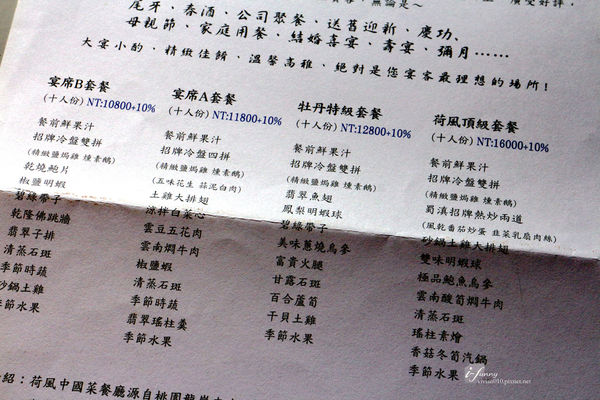 尾牙、春酒、公司聚餐、送舊迎新、慶功、
母親節、家庭用餐、結婚喜宴、壽宴、彌月……
大宴小酌，精緻佳餚，溫馨高雅，絕對是您宴客最理想的場所!
宴席B套餐
(十人份) NT:10800+10%
餐前鮮果汁
招牌冷盤雙拼
(精緻鹽焗雞 燻素鵝)
乾燒鮑片
椒鹽明蝦
碧綠帶子
乾隆佛跳牆
翡翠子排
清蒸石斑
季節時蔬
砂鍋土雞
季節水果
宴席A套餐
(十人份) NT:11800+10%
餐前鮮果汁
招牌冷盤四拼
(精緻鹽焗雞 燻素鵝)
(五味花生 蒜泥白肉)
土雞大排翅
涼拌白菜心
雲豆五花肉
雲南燜牛肉
椒鹽蝦
清蒸石斑
季節時蔬
翡翠瑤柱羹
季節水果
牡丹特級套餐
(十人份) NT:12800+10%
餐前鮮果汁
招牌冷盤雙拼
(精緻鹽焗雞 燻素鵝)
翡翠魚翅
鳳梨明蝦球
碧綠帶子
美味蔥燒烏參
富貴火腿
甘露石斑
百合蘆筍
干貝土雞
季節水果
荷風頂級套餐
(十人份) NT:16000+10%
餐前鮮果汁
招牌冷盤雙拼
(精緻鹽焗雞 燻素鵝)
蜀滇招牌熱炒兩道
(風乾番茄炒蛋 韭菜乳扇肉絲)
砂鍋土雞大排翅
雙味明蝦球
極品鮑魚烏參
雲南酸筍燜牛肉
清蒸石斑
瑤柱素燴
香菇冬筍汽鍋
季節水果
紹：荷風中國菜餐廳源自桃園龍岸
i-funny
vivian010.pixnet.net